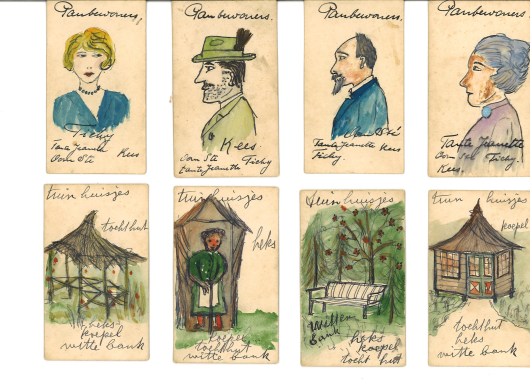 Panbewoners.
Tichy
Tante Jeanette
Oom Sté
Kees
Panbewoners.
Kees
Oom Sté
Tichy
Tante Jeanette
Panbewoners.
Oom Sté
Tante Jeanette
Kees
Tichy.
Panbewoners.
Tante Jeanette
Oom Sté
Tichy.
Kees.
tuin huisjes
tochthut
heks
koepel
witte bank
tuinhuisjes
heks
koepel
tochthut
witte bank
tuinhuisjes
Witte
Bank
heks
koepel
tocht hut
tuin huisjes
koepel
tochthut
heks
witte bank